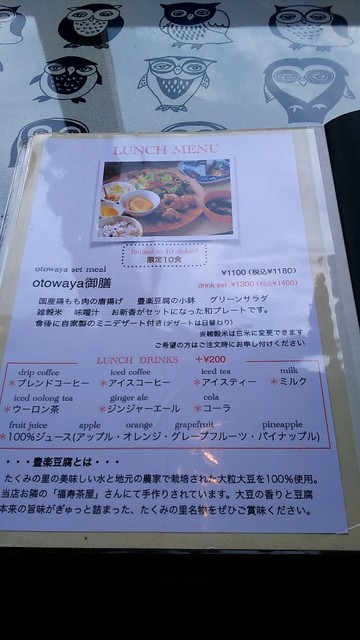 LUNCH MENU
limited to 10 dishes
限定10食
otowaya set meal
otowaya御膳
¥1100 (税込¥1180)
drink set ¥1300 (税込¥1400)
国産鶏もも肉の唐揚げ 豊楽豆腐の小鉢 グリーンサラダ
雑穀米 味噌汁 お新香がセットになった和プレートです。
食後に自家製のミニデザート付き(デザートは日替わり)
※雑穀米は白米に変更できます
ご希望の方はご注文時にお申し付けください
LUNCH DRINKS +¥200
drip coffee iced coffee iced tea milk
*ブレンドコーヒー *アイスコーヒー *アイスティー *ミルク
iced oolong tea ginger ale cola
*ウーロン茶 *ジンジャーエール *コーラ
fruit juice apple orange grapefruit pineapple
*100%ジュース(アップル・オレンジ・グレープフルーツ・パイナップル)
・・・豊楽豆腐とは・・・
たくみの里の美味しい水と地元の農家で栽培された大粒大豆を100%使用。
当店お隣の「福寿茶屋」さんにて手作りされています。大豆の香りと豆腐
本来の旨味がぎゅっと詰まった、たくみの里名物をぜひご賞味ください。